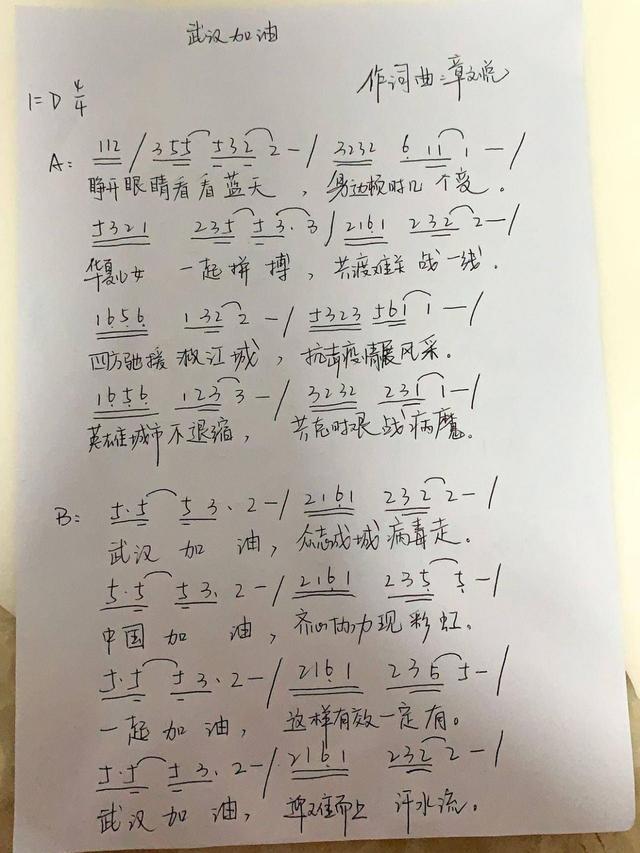 武汉加油
作词曲:章文悦
1=D 4/4
A: 112 / 355 532 2 - / 3232 6 11 1 - /
睁开眼睛看看蓝天,身边顿时几个变。
5321 235 5 3. 3 / 2161 232 2 - /
华夏儿女 一起拼搏,共渡难关 战一线。
1656 132 2 - / 5323 561 1 - /
四方驰援 救江城,抗击疫情展风采。
1656 123 3 - / 3232 231 1 - /
英雄城市不退缩,共克时艰 战病魔。
B: 5.5 5 3. 2 - / 2161 232 2 - /
武汉 加 油,众志成城 病毒走。
5.5 5 3. 2 - / 2161 235 5 - /
中国 加 油,齐心协力现彩虹。
5.5 5 3. 2 - / 2161 236 5 - /
一起 加 油,这样有效一定有。
5.5 5 3. 2 - / 2161 232 2 - /
武汉 加 油,迎难而上 汗水流。